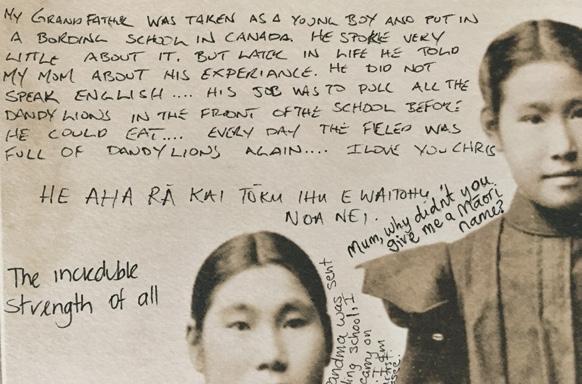 MY GRANDFATHER WAS TAKEN AS A YOUNG BOY AND PUT IN
A BORDING SCHOOL IN CANADA. HE SPOKE VERY
LITTLE ABOUT IT. BUT LATER IN LIFE HE TOLD
MY MOM ABOUT HIS EXPERIANCE. HE DID NOT
SPEAK ENGLISH .... HIS JOB WAS TO PULL ALL THE
DANDY LIONS IN THE FRONT OF THE SCHOOL BEFORE
HE COULD EAT.... EVERY DAY THE FIELED WAS
FULL OF DANDY LIONS AGAIN.... I LOVE YOU CHRIS
HE AHA RĀ KAI TŌKU IHU E WAITOHU
NOA NEI.
Mum, why didn't you
give me a Māori
name?
The incredible
Strength of all
andma was sent
ing school; I
carry on
I I'm